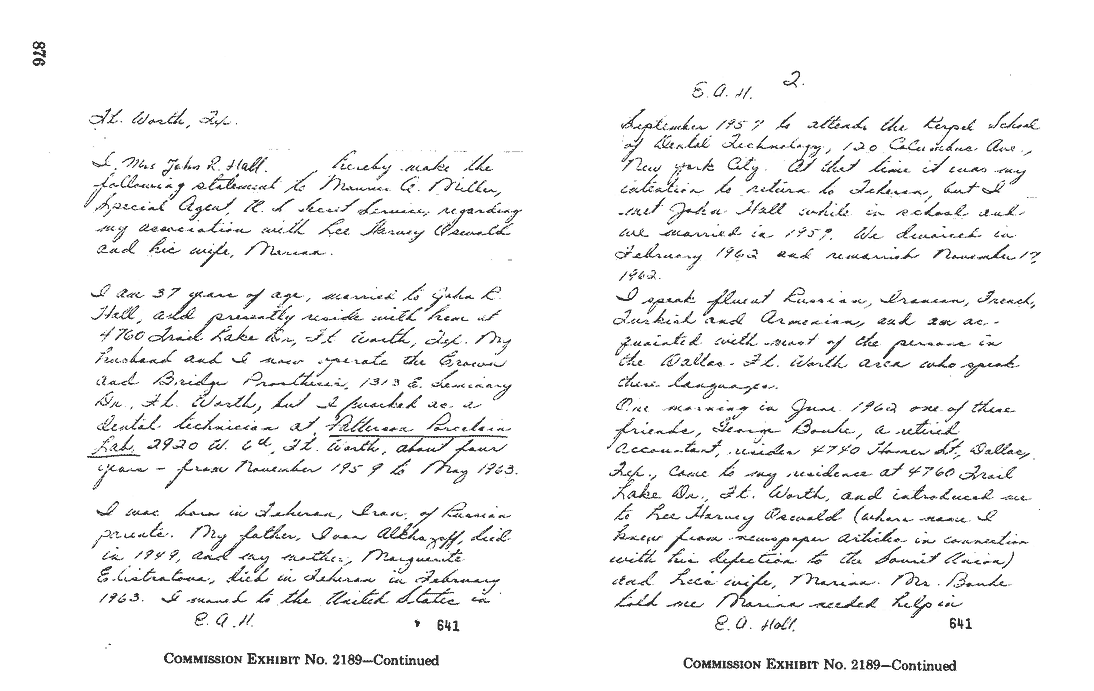 876
Ft. Worth, Tex.
I, Mrs John R. Hall. hereby make the
following statement to Maurice G. Miller,
Special Agent, U. S Secret Service, regarding
my association with Lee Harvey Oswald
and his wife, Marina.
I am 37 years of age, married to John R.
Hall, and presently reside with him at
4760 Trail Lake Dr., Ft. Worth, Tex. My
husband and I now operate the Crown
and Bridge Prosthesis, 1313 E. Seminary
Dr., Ft. Worth, but I worked as a
dental technician at Patterson Porcelain
Lab, 2920 W. 6th, Ft. Worth, about four
years - from November 1959 to May 1963.
I was born in Teheran, Iran, of Russian
parents. My father, Ivan Alkhazoff, died
in 1949, and my mother, Marguerite
Elistratova, died in Teheran in February
1963. I moved to the United States in
E. A. H.
641
COMMISSION EXHIBIT No. 2189—Continued
2.
E. A. H.
September 1957 to attends the Kerpel School
of Dental Technology, 120 Columbus Ave.,
New York City. At that time it was my
intention to return to Teheran, but I
met John Hall while in school and
we married in 1959. We divorced in
February 1962 and remarrish November 17,
1962.
I speak fluent Russian, Iranian, French,
Turkish and Armenian, and am ac-
quainted with most of the persons in
the Dallas - Ft. Worth area who speak
these languages.
One morning in June 1962 one of these
friends, George Bouhe, a retired
accountant, resides 4740 Homer St., Dallas,
Tex., came to my residence at 4760 Trail
Lake Dr., Ft. Worth, and introduced me
to Lee Harvey Oswald (whose name I
knew from newspaper articles in connection
with his defection to the Soviet Union)
and Lee's wife, Marina. Mr. Bouhe
told me Marina needed help in
E. A. Hall.
641
COMMISSION EXHIBIT No. 2189—Continued